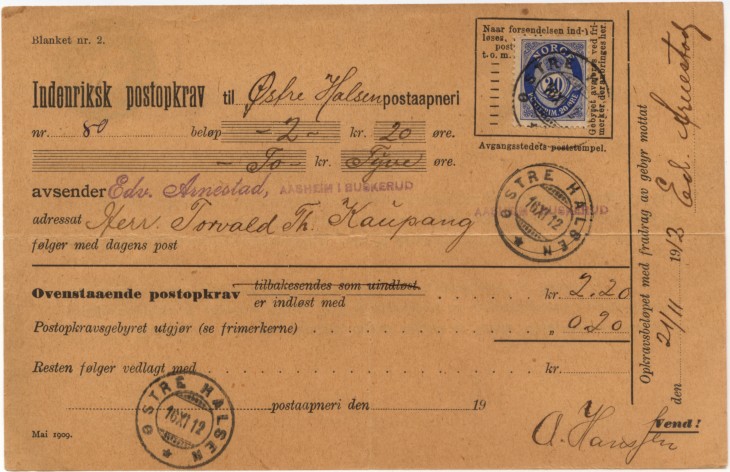 Blanket nr. 2.
Naar forsendelsen ind-
løses,
post
t.o.m.
Gebyret avgjøres ved fri-
merker, der anbringes her.
NORGE
20
Indenriksk postopkrav til Østre Halsen postaapneri
nr. 80 beløp - 2 - kr. 20 øre.
- To - kr. Tyve øre.
Avgangsstedets poststempel.
avsender Edv. Arnestad, AASHEIM I BUSKERUD
AASHEIM I BUSKERUD
adressat Herr Torvald Th. Kaupang
følger med dagens post
ØSTRE HALSEN
16 XI 12
Ovenstaaende postopkrav tilbakesendes som uindløst.
er indløst med kr. 2.20
Postopkravsgebyret utgjør (se frimerkerne) „ 0.20
Resten følger vedlagt med kr.
postaapneri den 19
ØSTRE HALSEN
16 XI 12
A. Hanssen
Mai 1909.
Vend!
Opkravsbeløpet med fradrag av gebyr mottat
den 21/11 1912 Ed. Arnestad